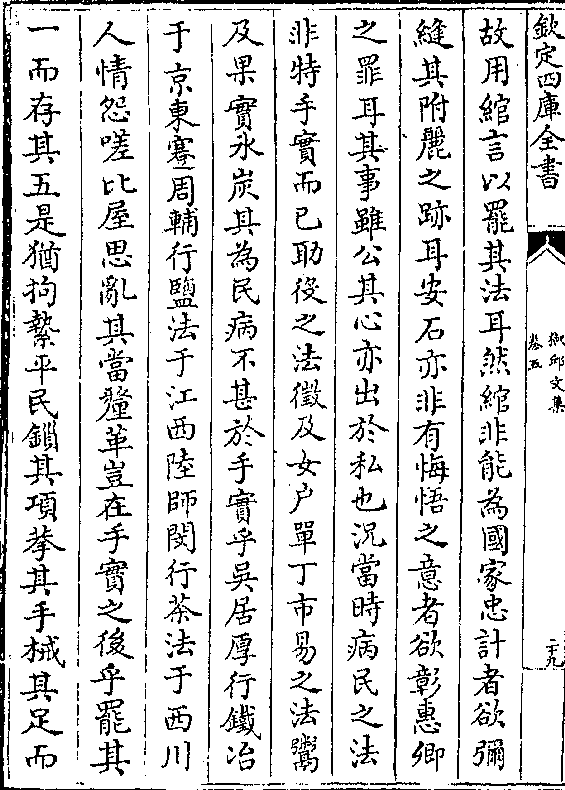 欽定四庫全書
卷五
二十九
故用綰言以罷其法耳然綰非能為國家忠計者欲彌
縫其附麗之跡耳安石亦非有悔悟之意者欲彰惠卿
之罪耳其事雖公其心亦出於私也況當時病民之法
非特手實而已助役之法徵及女户單丁市易之法鬻
及果實氷炭其為民病不甚於手實乎吳居厚行鐵冶
于京東蹇周輔行鹽法于江西陸師閔行茶法于西川
人情怨嗟比屋思亂其當釐革豈在手實之後乎罷其
一而存其五是猶拘縶平民鎖其項拲其手械其足而